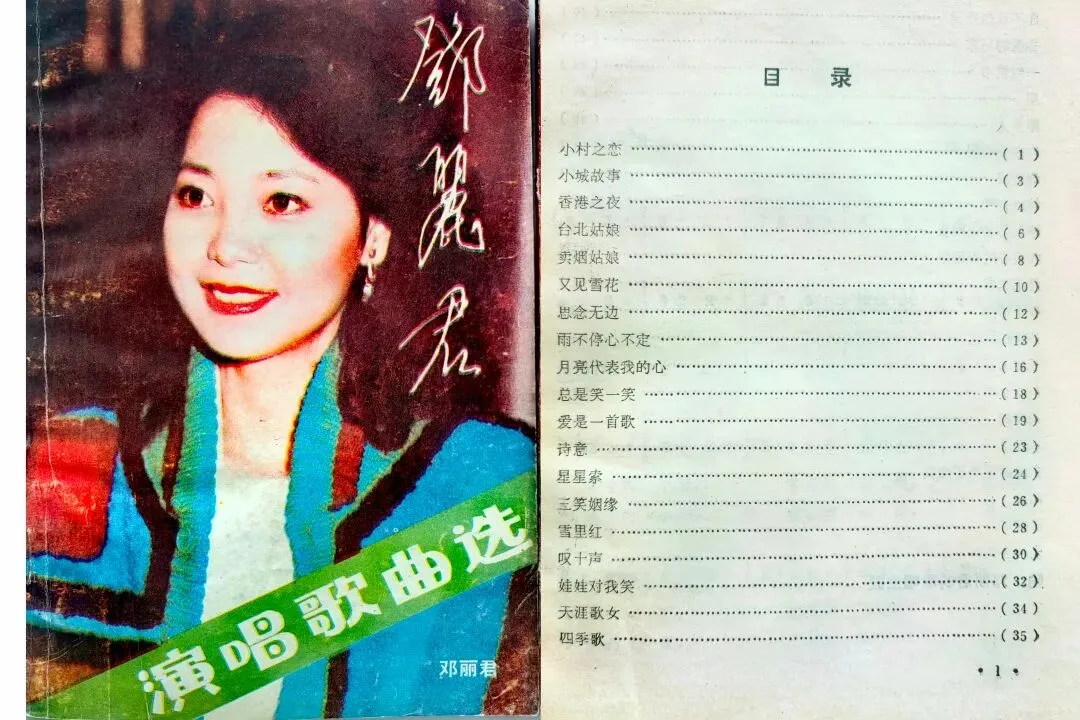 鄧麗君
演唱歌曲选
邓丽君
目录
小村之恋 ( 1 )
小城故事 ( 3 )
香港之夜 ( 4 )
台北姑娘 ( 6 )
卖烟姑娘 ( 8 )
又见雪花 ( 10 )
思念无边 ( 12 )
雨不停心不定 ( 13 )
月亮代表我的心 ( 16 )
总是笑一笑 ( 18 )
爱是一首歌 ( 19 )
诗意 ( 23 )
星星索 ( 24 )
三笑姻缘 ( 26 )
雪里红 ( 28 )
叹十声 ( 30 )
娃娃对我笑 ( 32 )
天涯歌女 ( 34 )
四季歌 ( 35 )
• 1 •